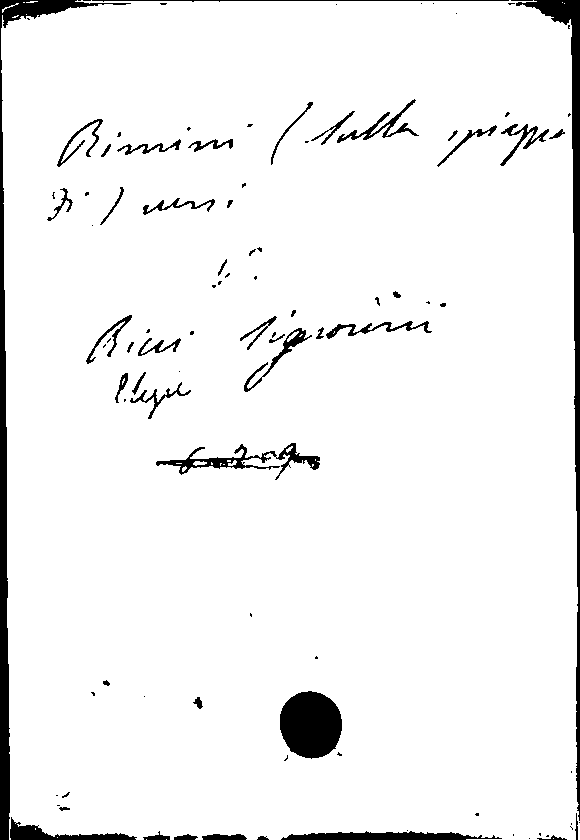 Rimini (Sulla spiaggia
di) versi
V.
Ricci Signorini
Elegie